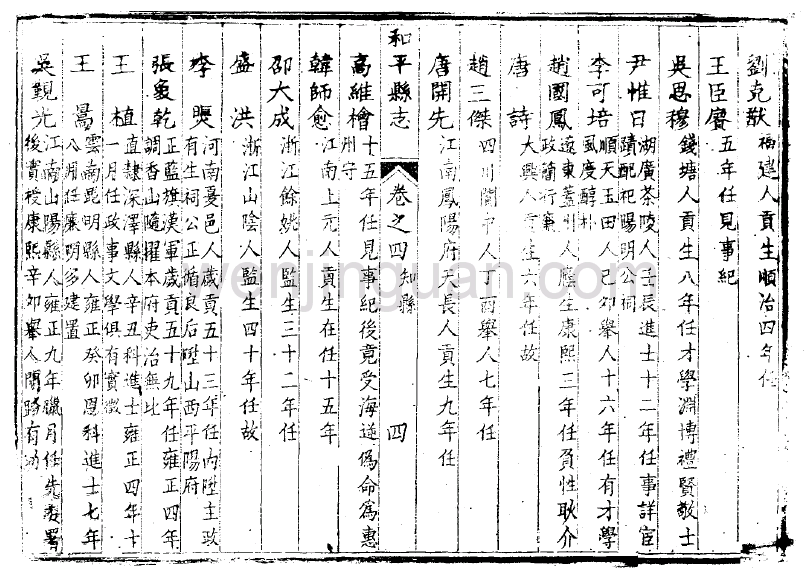 劉克猷福建人貢生順治四年任
王臣賡五年任見事紀
吳思穆錢塘人貢生八年任才學淵博禮賢敬士
尹惟日湖廣茶陵人壬辰進士十二年任事詳宦
蹟配祀陽明公祠
李可培順天玉田人己卯舉人十六年任有才學
風度醇朴
趙國鳳遼東蓋州人廕生康熙三年任負性耿介
政簡行廉
唐詩大興人貢生六年任故
趙三傑四川閬中人丁酉舉人七年任
唐開先江南鳳陽府天長人貢生九年任
和平縣志 卷之四 知縣 四
高維檜十五年任見事紀後竟受海逆偽命為惠
州守
韓師愈江南上元人貢生在任十五年
邵大成浙江餘姚人監生三十二年任
盛洪浙江山陰人監生四十年任故
李煚河南夏邑人歲貢五十三年任內陞主政
有生祠公正循良后陞山西平陽府
張象乾正藍旗漢軍歲貢五十九年任雍正四年
調香山隨擢本府吏治無比
王植直隸深澤縣人辛丑科進士雍正四年十
一月任政事文學俱有實徵
王暠雲南昆明縣人雍正癸卯恩科進士七年
八月任廉明多建置
吳觀光江南山陽縣人雍正九年臘月任先委署
後實授康熙辛卯舉人
wenjinguan.com